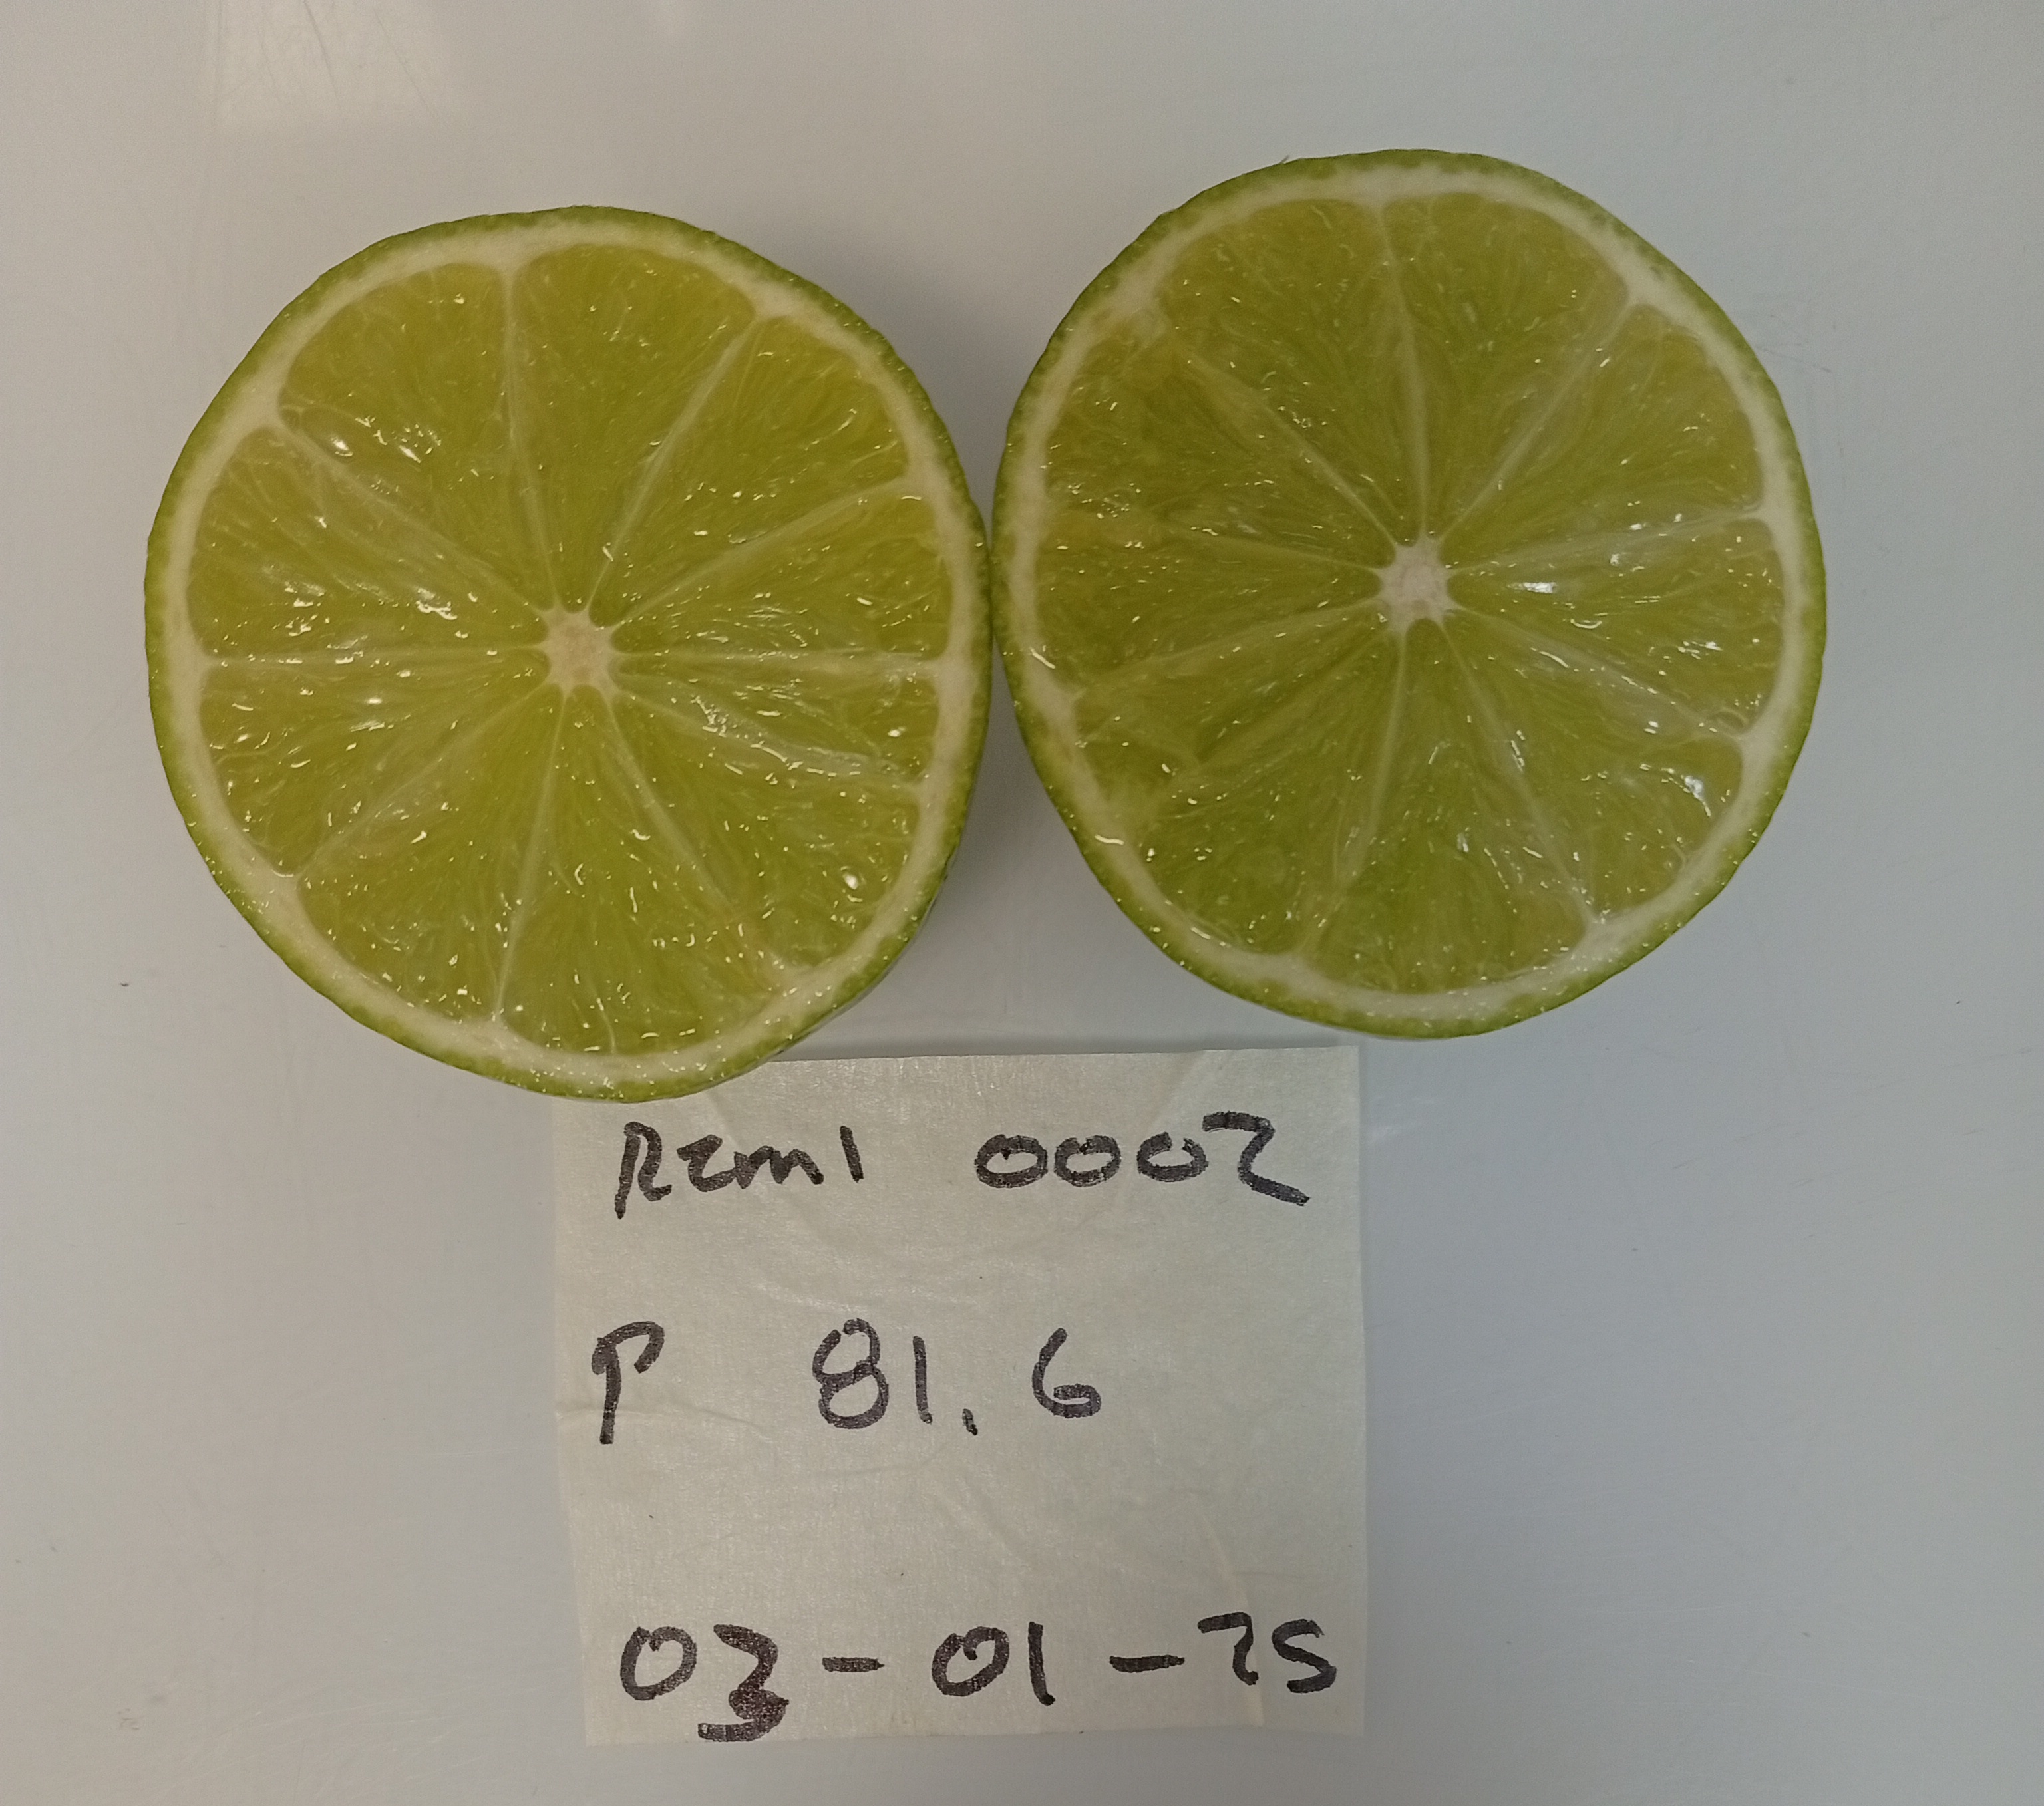 Rem1 0002
P 81.6
03-01-25